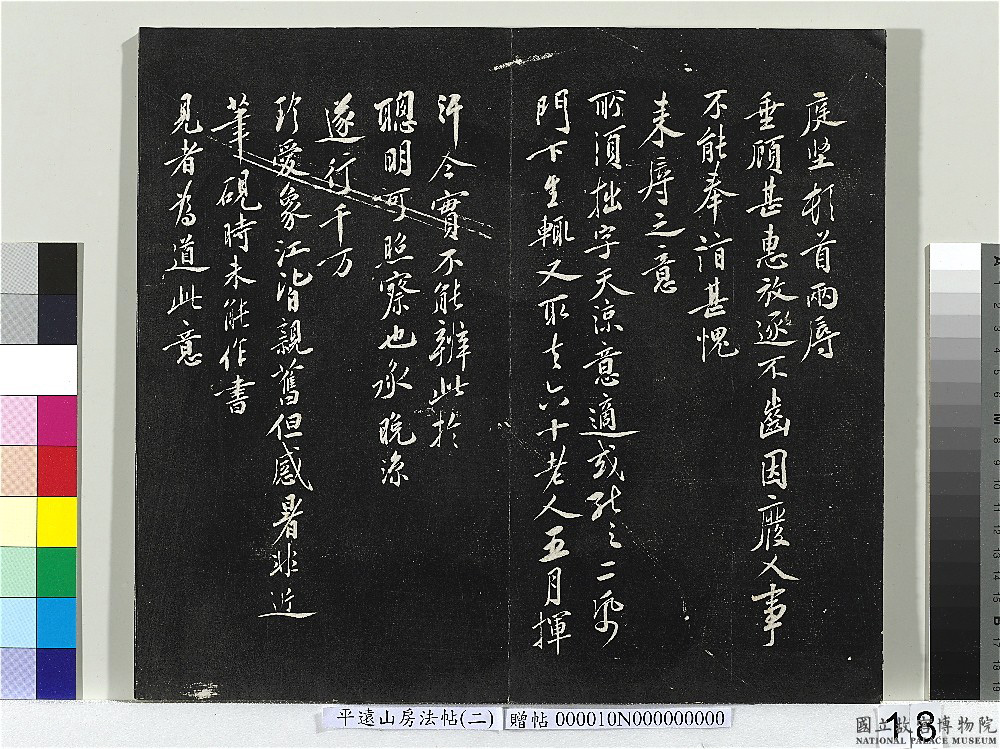 庭堅頓首兩辱
垂顧甚惠放逐不齒因廢人事
不能奉詣甚愧
來辱之意
所須拙字天涼意適或能之二帋
門下生輒又取去六十老人五月揮
汗今實不能辦此於
聰明可照察也承晚涼
遂行千万
珍愛象江皆親舊但感暑非近
筆硯時未能作書
見者為道此意
平遠山房法帖(二)
贈帖 000010N000000000
18
國立故宮博物院
NATIONAL PALACE MUSEUM